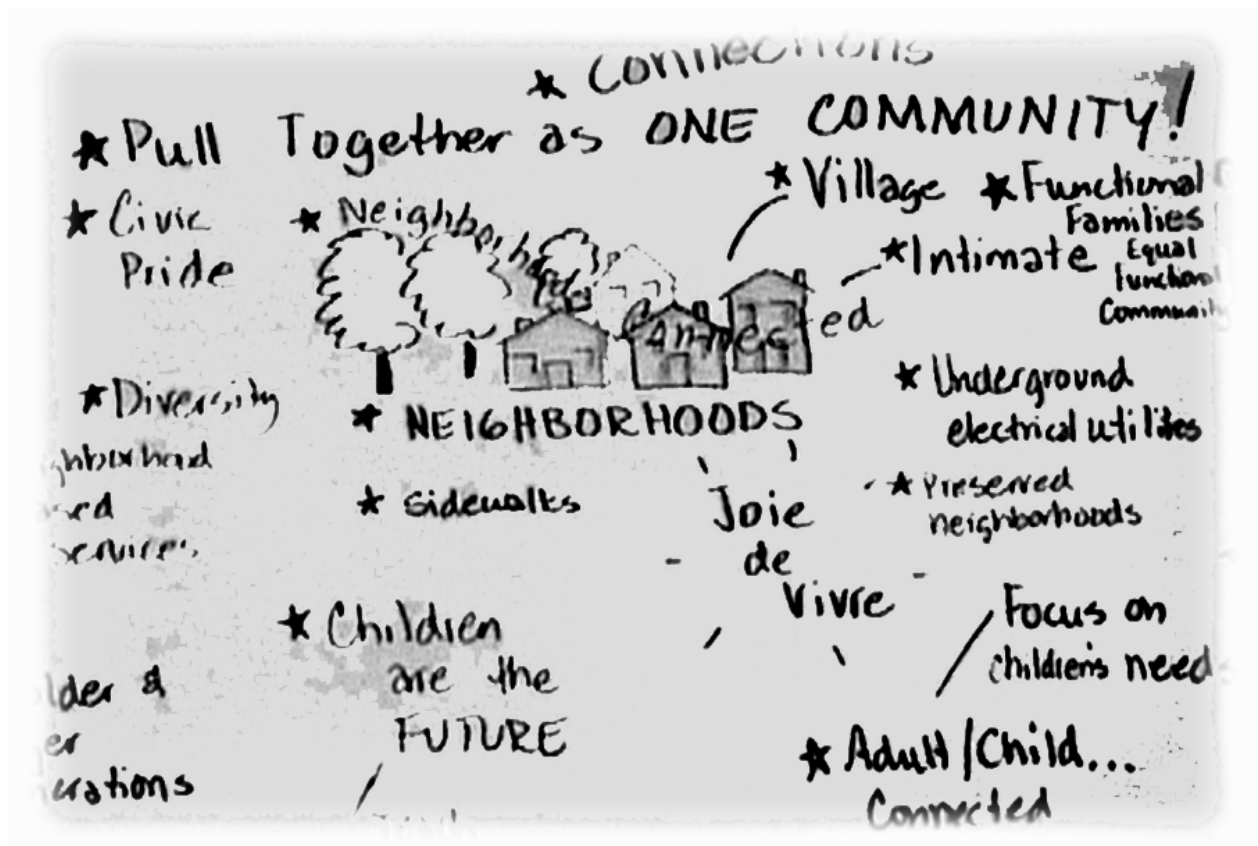 ★ Connections
★ Pull Together as ONE COMMUNITY!
★ Civic
Pride
★ Neighborhoods
Connected
★ Village
★ Functional
Families
Equal
Functional
Community
★ Intimate
★ Diversity
★ NEIGHBORHOODS
★ Underground
electrical utilites
★ Sidewalks
Joie
de
Vivre
★ Preserved
neighborhoods
services
★ Children
are the
FUTURE
Focus on
children's need
lder &
er
erations
★ Adult/Child...
Connected